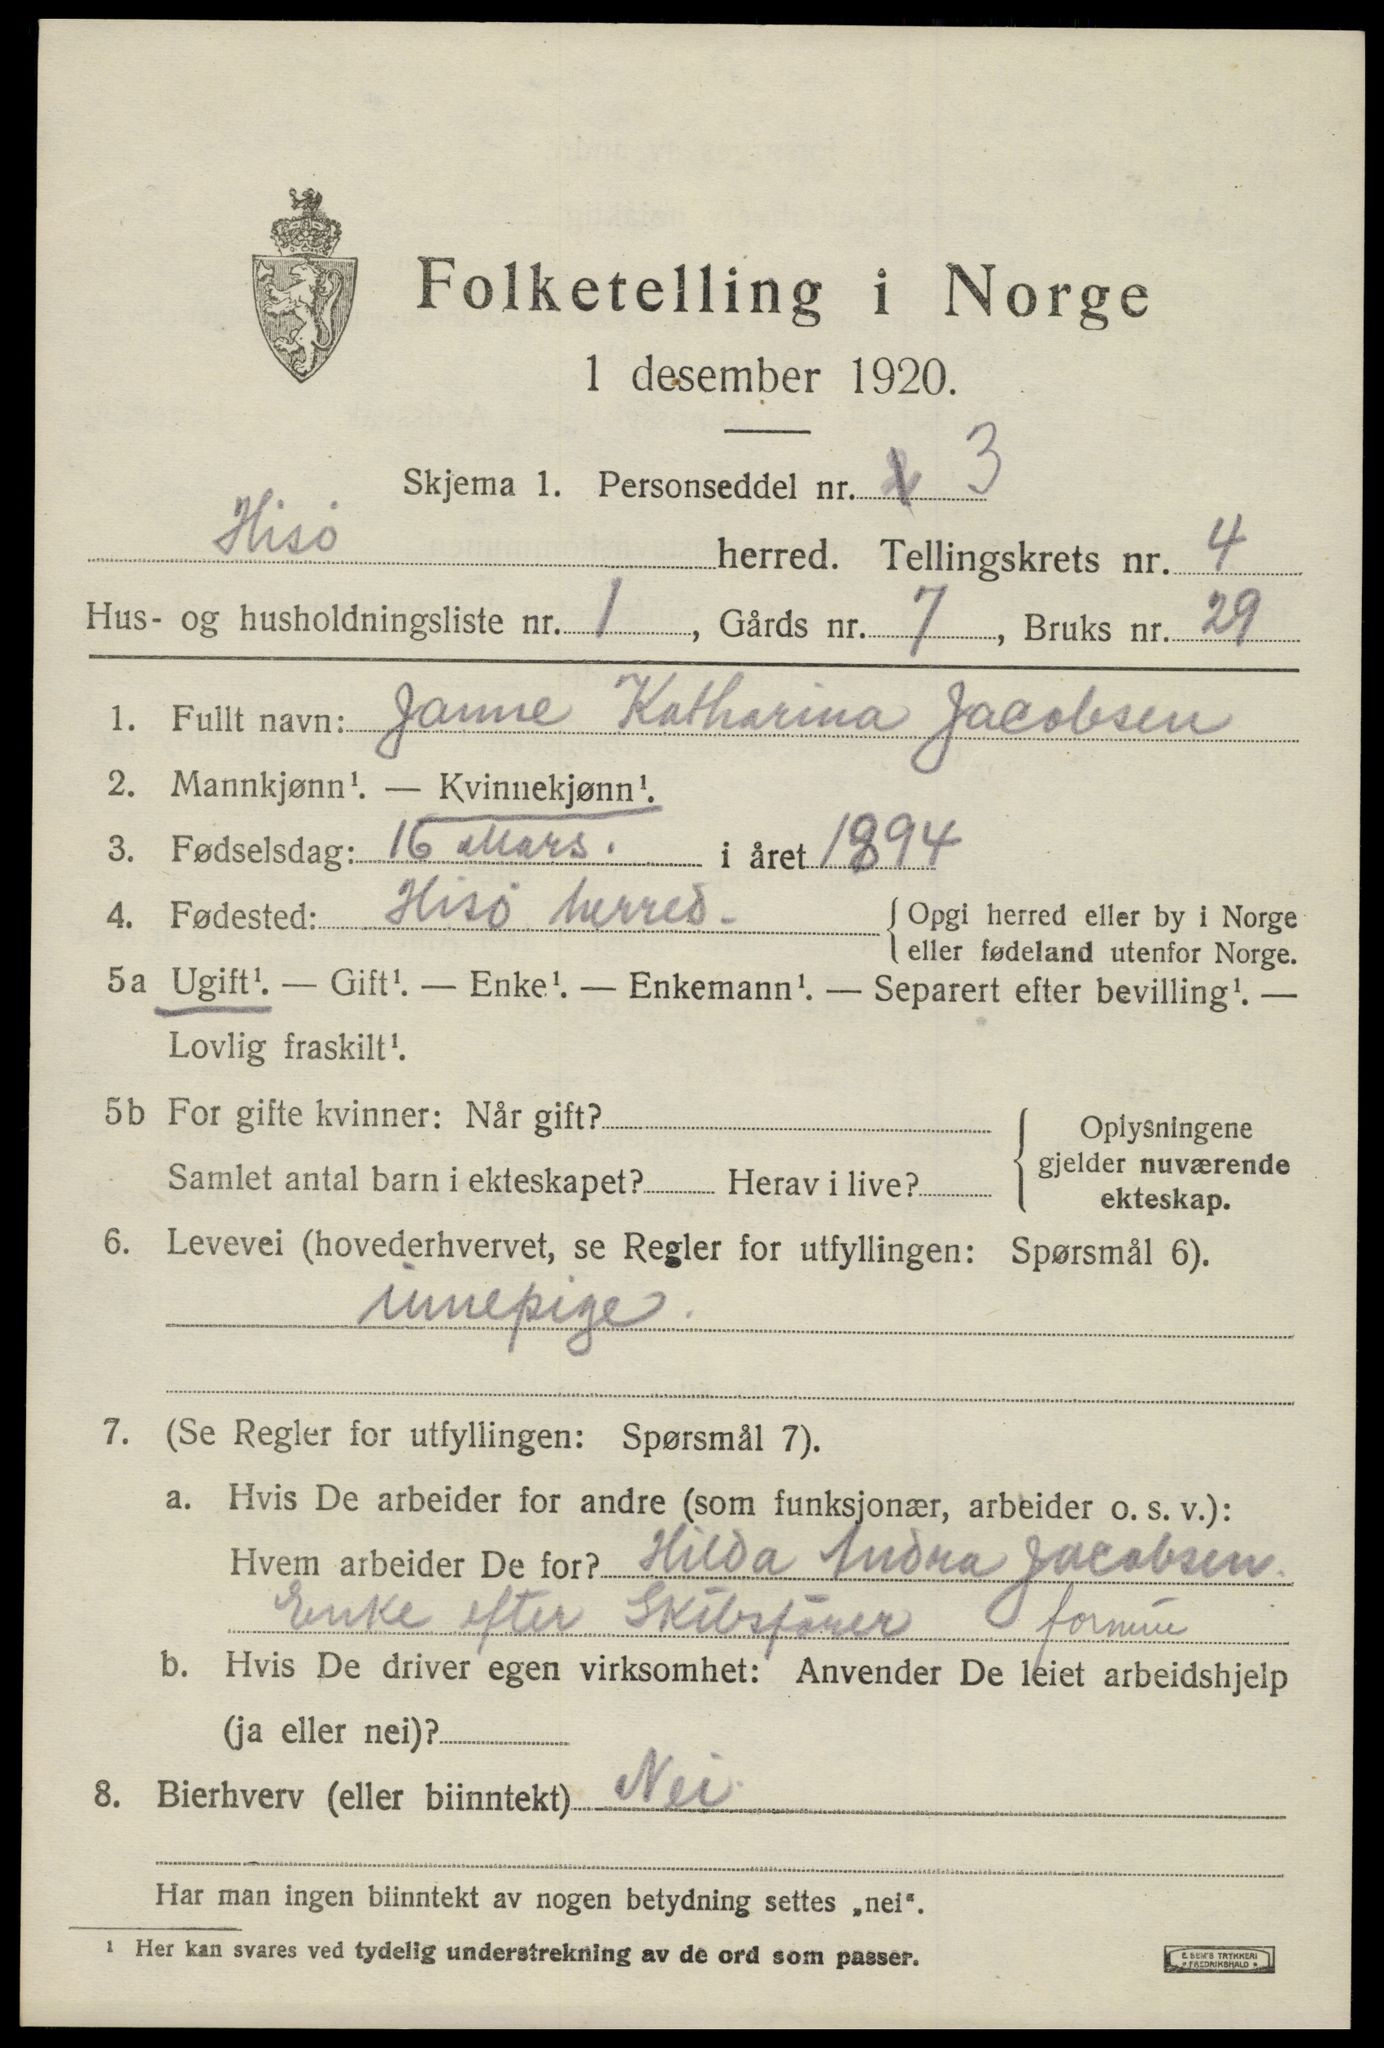 Folketelling i Norge
1 desember 1920.
Skjema 1. Personseddel nr. 3
Hisö herred. Tellingskrets nr. 4
Hus- og husholdningsliste nr. 1, Gårds nr. 7, Bruks nr. 29
1. Fullt navn: Janne Katharina Jacobsen
2. Mannkjønn¹. — Kvinnekjønn¹.
3. Fødselsdag: 16 Mars. i året 1894
4. Fødested: Hisö herred. { Opgi herred eller by i Norge
eller fødeland utenfor Norge.
5a Ugift¹. — Gift¹. — Enke¹. — Enkemann¹. — Separert efter bevilling¹. —
Lovlig fraskilt¹.
5b For gifte kvinner: Når gift?
Samlet antal barn i ekteskapet? Herav i live?
{ Oplysningene
gjelder nuværende
ekteskap.
6. Levevei (hovederhvervet, se Regler for utfyllingen: Spørsmål 6).
innepige.
7. (Se Regler for utfyllingen: Spørsmål 7).
a. Hvis De arbeider for andre (som funksjonær, arbeider o. s. v.):
Hvem arbeider De for? Hilda Andrea Jacobsen.
Enke efter Skibsförer formue
b. Hvis De driver egen virksomhet: Anvender De leiet arbeidshjelp
(ja eller nei)?
8. Bierhverv (eller biinntekt) Nei.
Har man ingen biinntekt av nogen betydning settes „nei“.
¹ Her kan svares ved tydelig understrekning av de ord som passer.
E. SEM'S TRYKKERI
FREDRIKSHALD